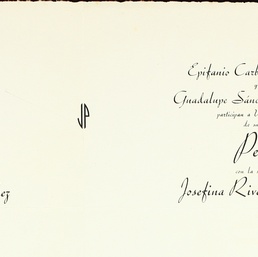 JP
Epifanio Carb
y
Guadalupe Sánc
participan a U
de su
Pe
con la s
Josefina Rive
ez